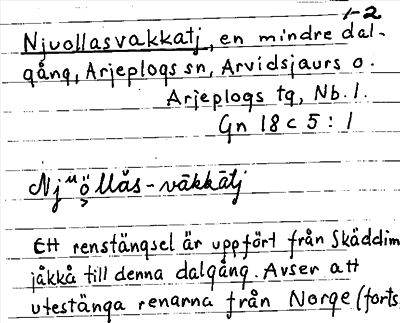 1-2
Njuollasvakkatj, en mindre dal-
gång, Arjeplogs sn, Arvidsjaurs o.
Arjeplogs tg, Nb. l.
Gn 18 c 5 : 1
Ett renstängsel är uppfört från Skäddim
jåkkå till denna dalgång. Avser att
utestänga renarna från Norge (forts.